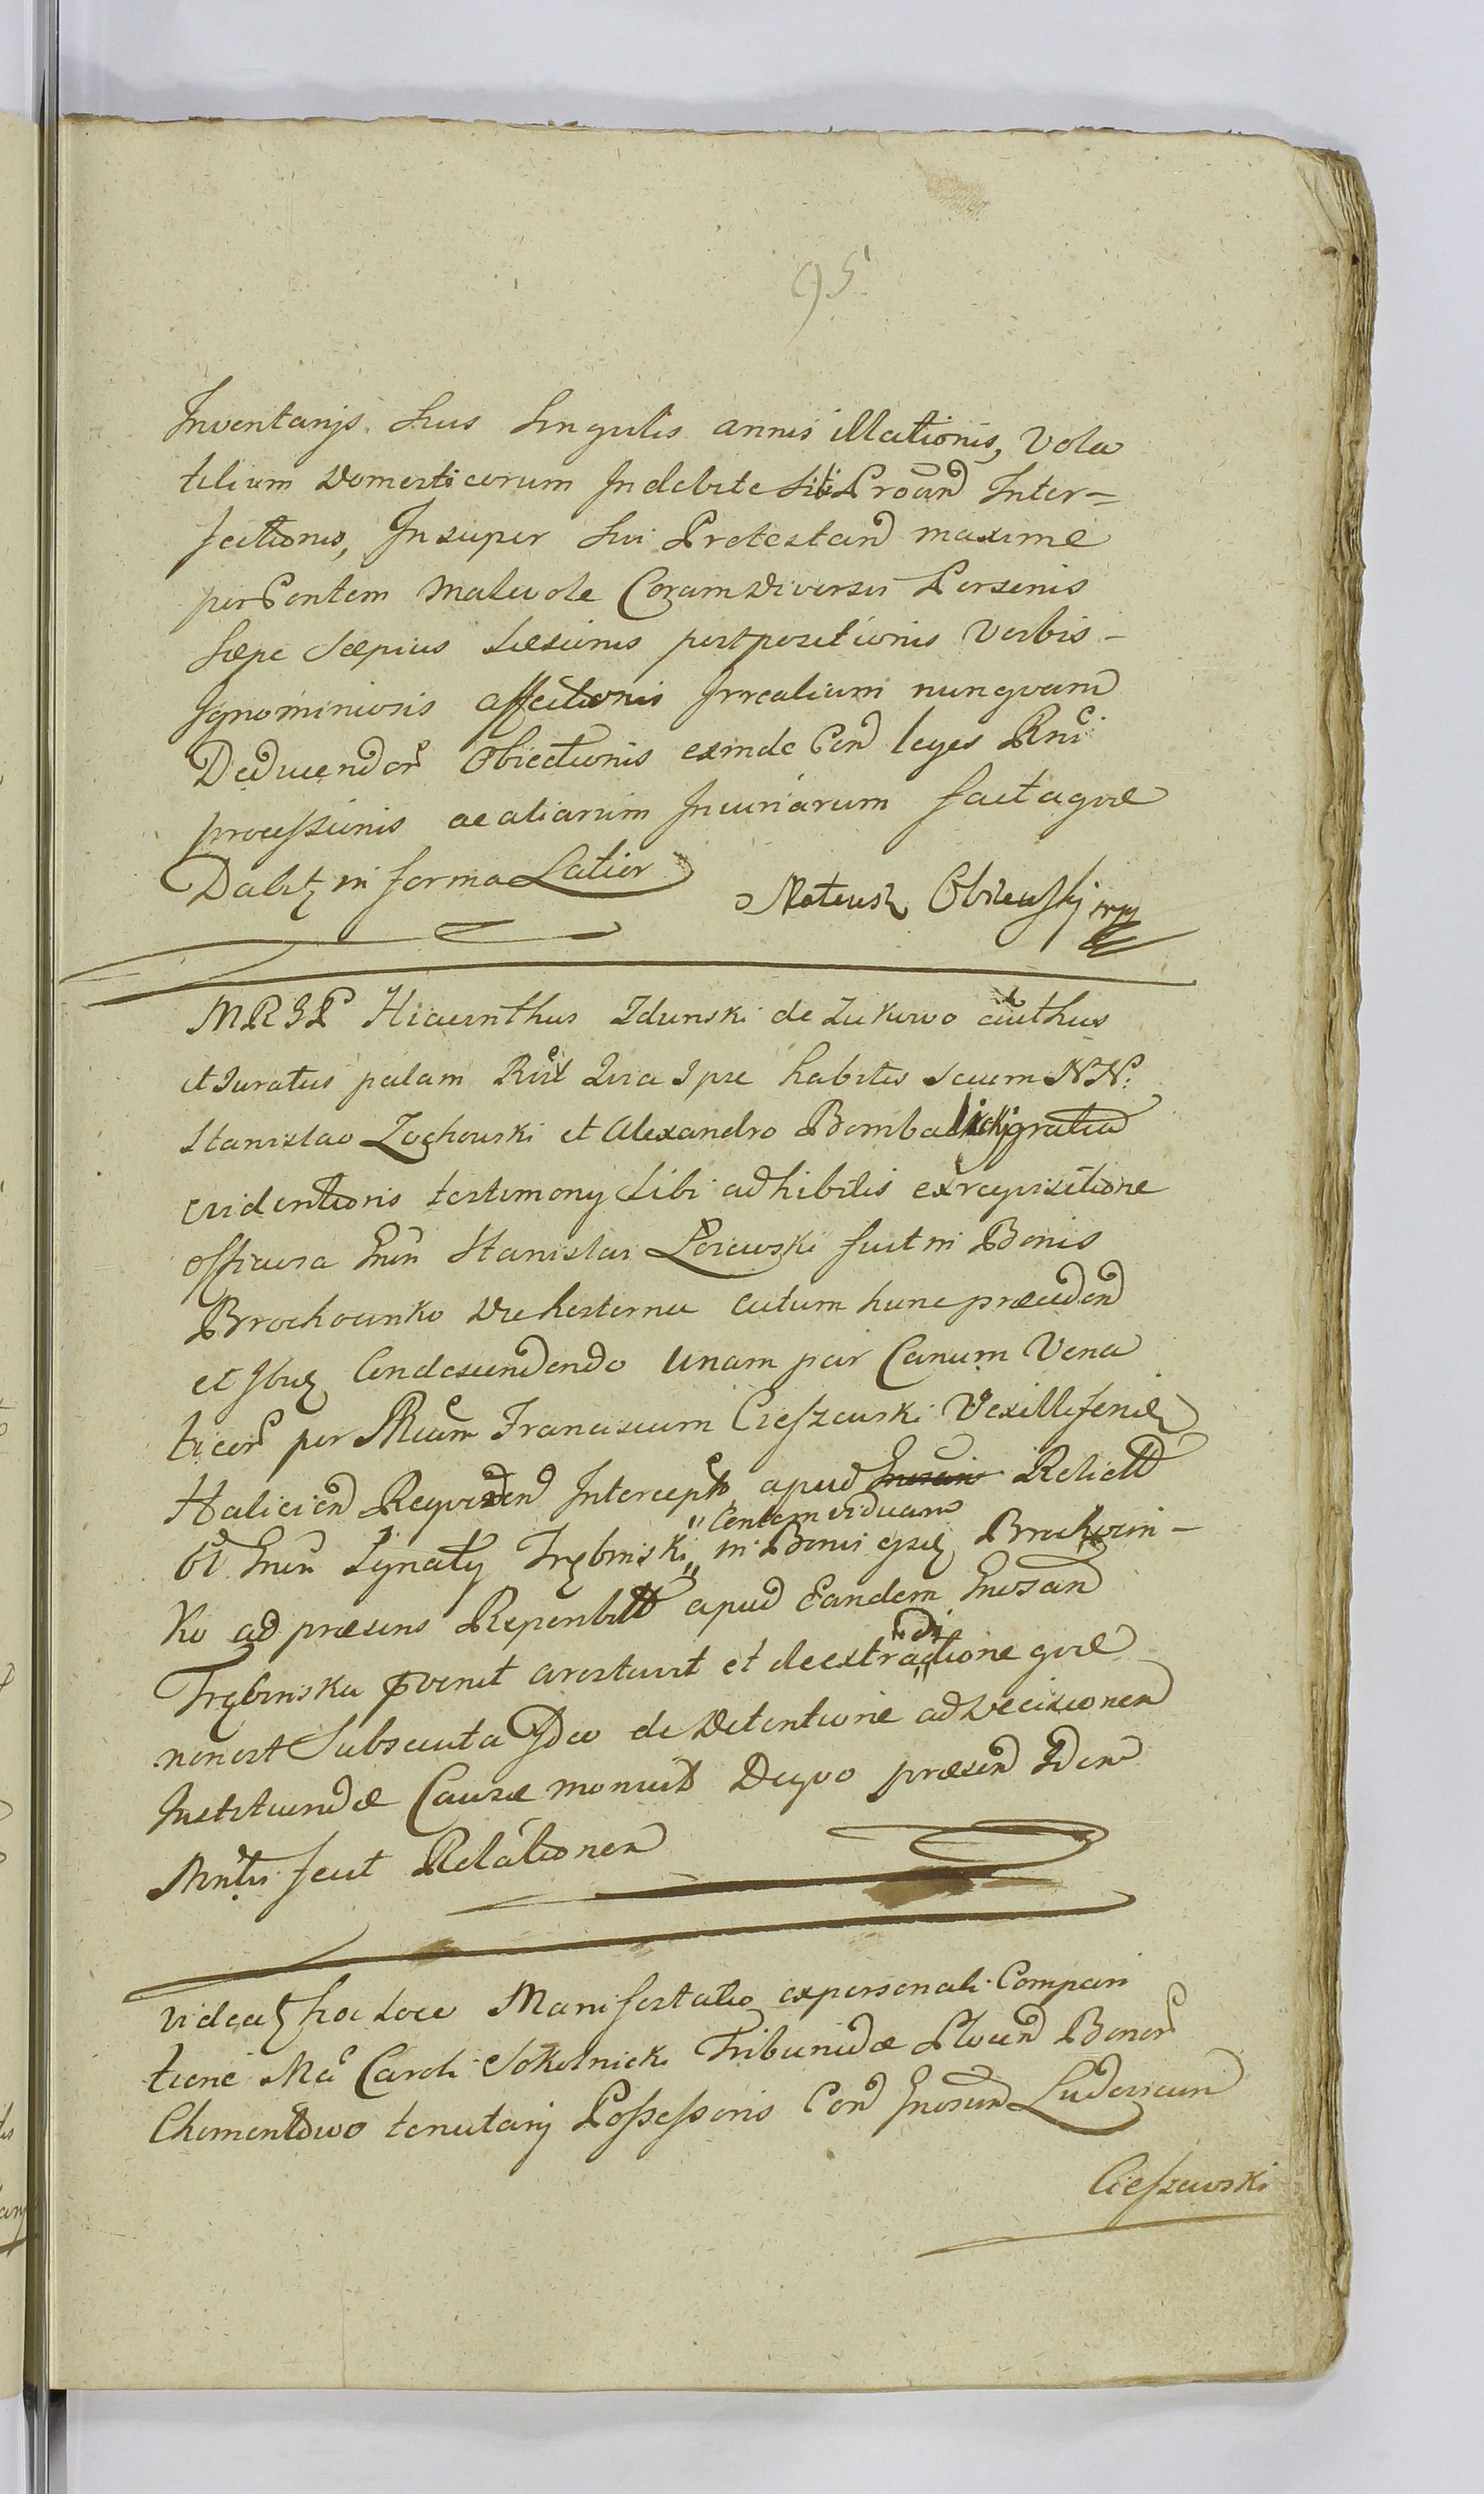 95
Inventarijs suis singulis annis illationis, Vola
tilium Domesticorum Indebite sibi Procurand Inter=
fectionis, Insuper sui Protestand maxime
per Contem malevole Coram Diversis Personis
sæpe sæpius Læsionis postpositionis Verbis -
Ignominiosis affectionis Irrealium nunquam
Deducendor Obiectionis exinde Con leges Rni
processionis ac aliarum Iniuriarum factaque
Dabit in forma Latior
Mateusz Obrewski mp
MRGP Hiacinthus Zdunski de Zukowo authus
et Iuratus palam Rcit Quia Ipse habitis secum NN:
Stanislao Zochowski et Alexandro Bombalicki gratia
evidentioris testimonij sibi adhibitis ex requisitione
officiosa Gnsi Stanislai Lesiewski fuit in Bonis
Brochocinko Die hesterna actum hunc præceden
et Ibidem Condescendendo Unam par Canum Vena
ticor per Mcum Franciscum Cieszewski Vexilliferid
Halicien Reqviren Intercept apud Relictt
Ol Gnsi Ignatij Trębinski „ Contem viduam „ in Bonis ejus Brochocin -
ko ad præsens Reperibilt apud Eandem Gnosan
Trębinska pvenit arestavit et de extraditione qvæ
non est Subsecuta Ideo de Detentione ad Decisionem
Instituendæ Causæ monuit Deqvo præsen Iden
Mntr fecit Relationem
Videat hoc Loco Manifestatio ex personali Compari
tione Mci Caroli Sokolnicki Tribunidæ Plocen Bonor
Chomentowo tenutarij Possessoris Con Gnosum Ludovicum
Cieszewski